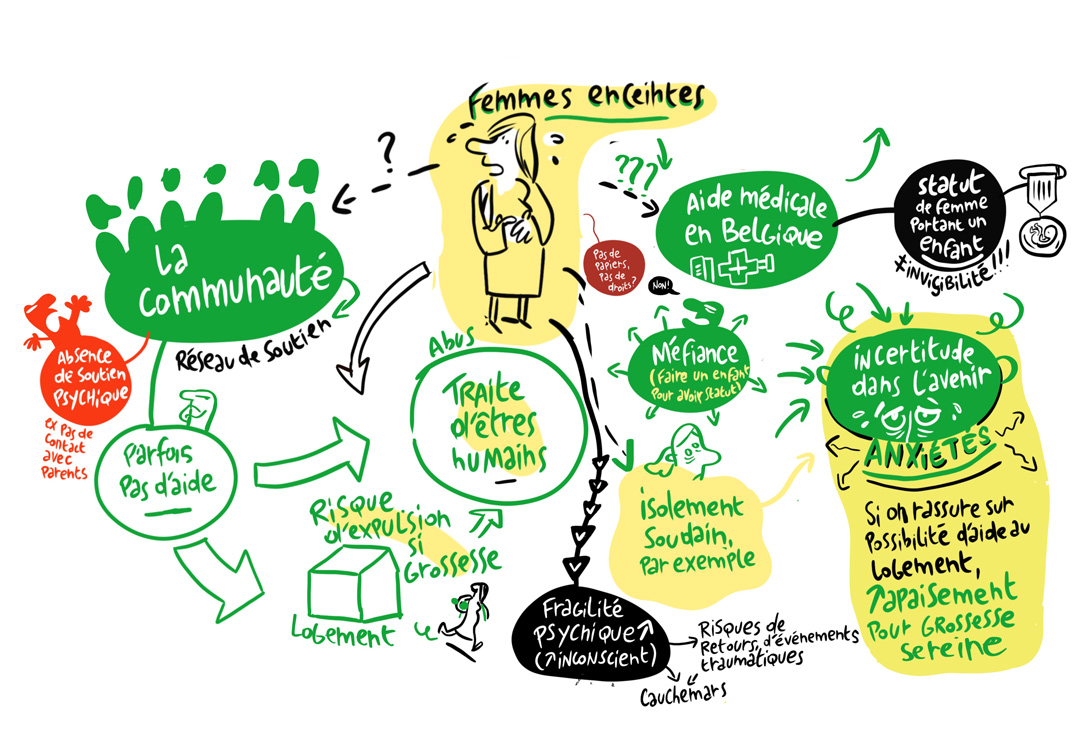 Femmes enceintes
?
???
La
communauté
Réseau de Soutien
Absence
de Soutien
PSYCHIQUE
ex Pas de
Contact
avec
Parents
Parfois
Pas d'aide
Aide médicale
en Belgique
Statut
de femme
Portant un
enfant
≠invigibilité!!!
Pas de
Papiers,
Pas de
droits?
Non!
Méfiance
(Faire un enfant
Pour avoir statut)
Abus
TRAITE
d'êtres
humains
Risque
d'expulsion
si
Grossesse
Logement
isolement
Soudain,
Par exemple
Fragilité
PSYchique ↑
(↑inconscient)
Risques de
Retours d'événements
traumatiques
Cauchemars
incertitude
dans l'avenir
ANXIÉTÉS
Si on rassure sur
Possibilité d'aide au
Logement,
↑apaisement
Pour Grossesse
sereine